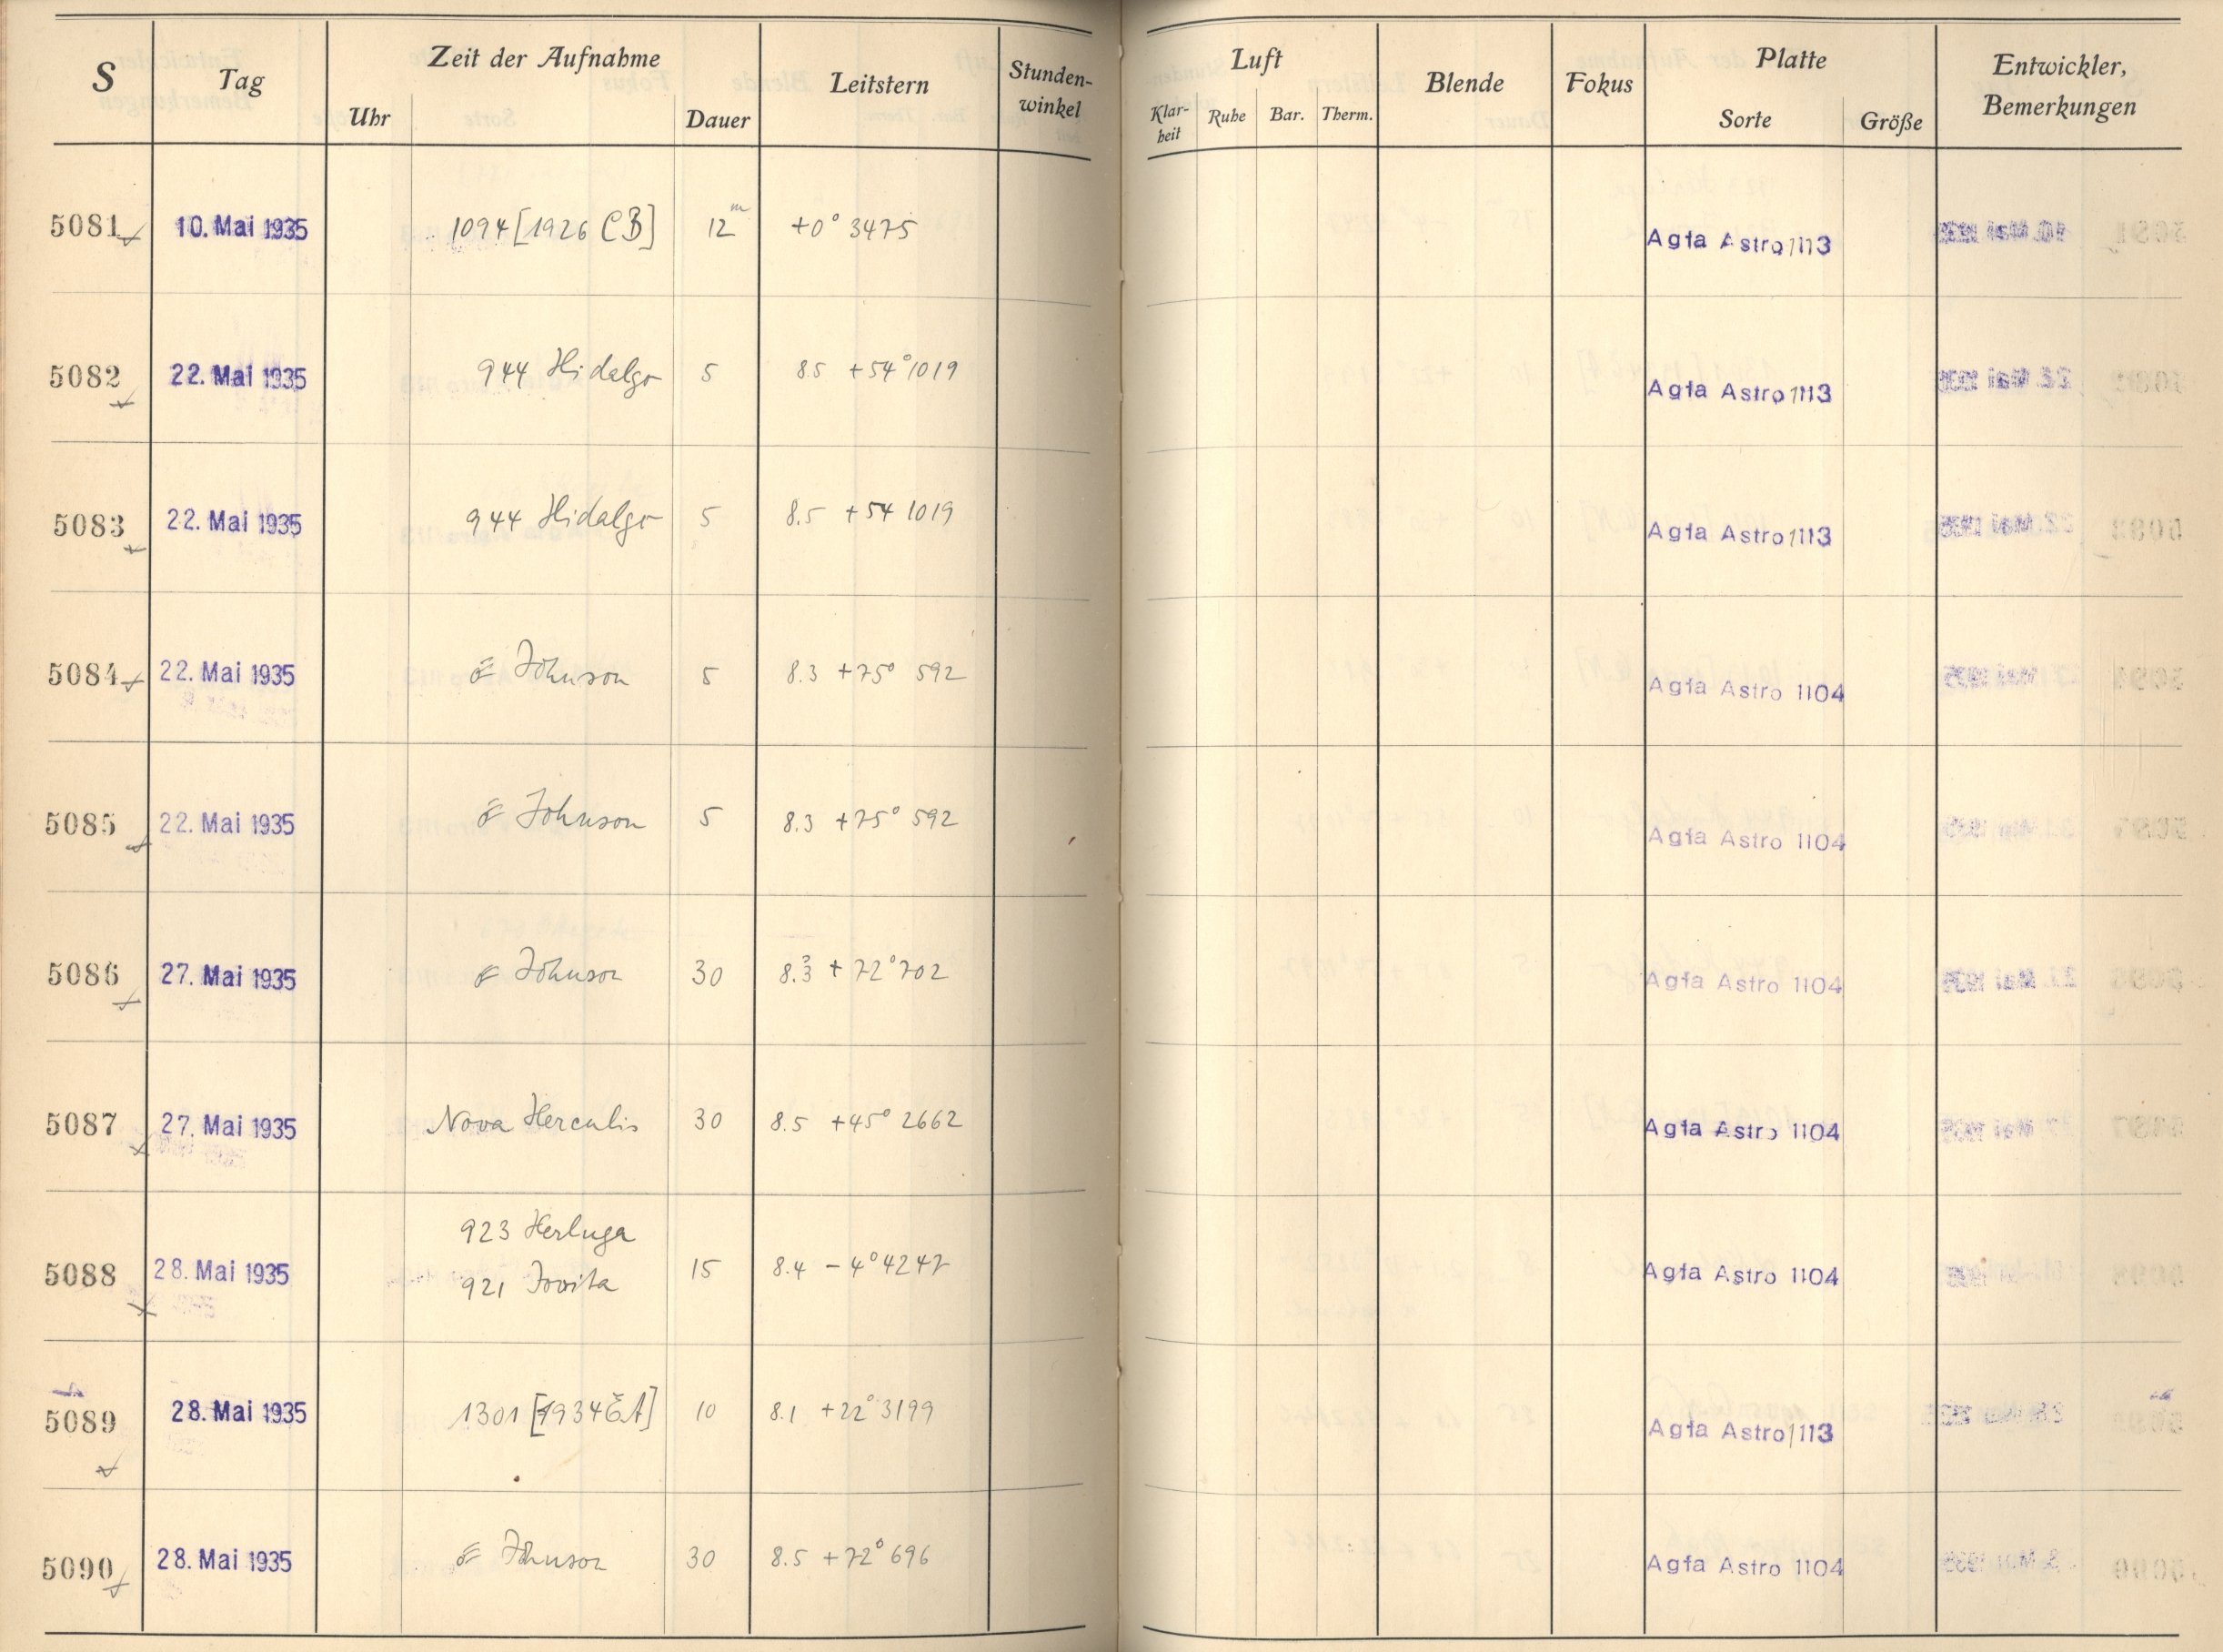 S Tag Zeit der Aufnahme Leitstern Stunden-
winkel Luft Blende Fokus Platte Entwickler,
Bemerkungen
Uhr Dauer Klar-
heit Ruhe Bar. Therm. Sorte Größe
5081 10. Mai 1935 1094 [1926 CB] 12 m +0° 3475 Agfa Astro 1113
5082 22. Mai 1935 944 Hidalgo 5 8.5 +54° 1019 Agfa Astro 1113
5083 22. Mai 1935 944 Hidalgo 5 8.5 +54 1019 Agfa Astro 1113
5084 22. Mai 1935 Johnson 5 8.3 +75° 592 Agfa Astro 1104
5085 22. Mai 1935 Johnson 5 8.3 +75° 592 Agfa Astro 1104
5086 27. Mai 1935 Johnson 30 8.3 +72° 702 Agfa Astro 1104
5087 27. Mai 1935 Nova Herculis 30 8.5 +45° 2662 Agfa Astro 1104
923 Herluga
5088 28. Mai 1935 921 Jovita 15 8.4 -4° 4247 Agfa Astro 1104
5089 28. Mai 1935 1301 [1934 EA] 10 8.1 +22° 3199 Agfa Astro 1113
5090 28. Mai 1935 Johnson 30 8.5 +72° 696 Agfa Astro 1104